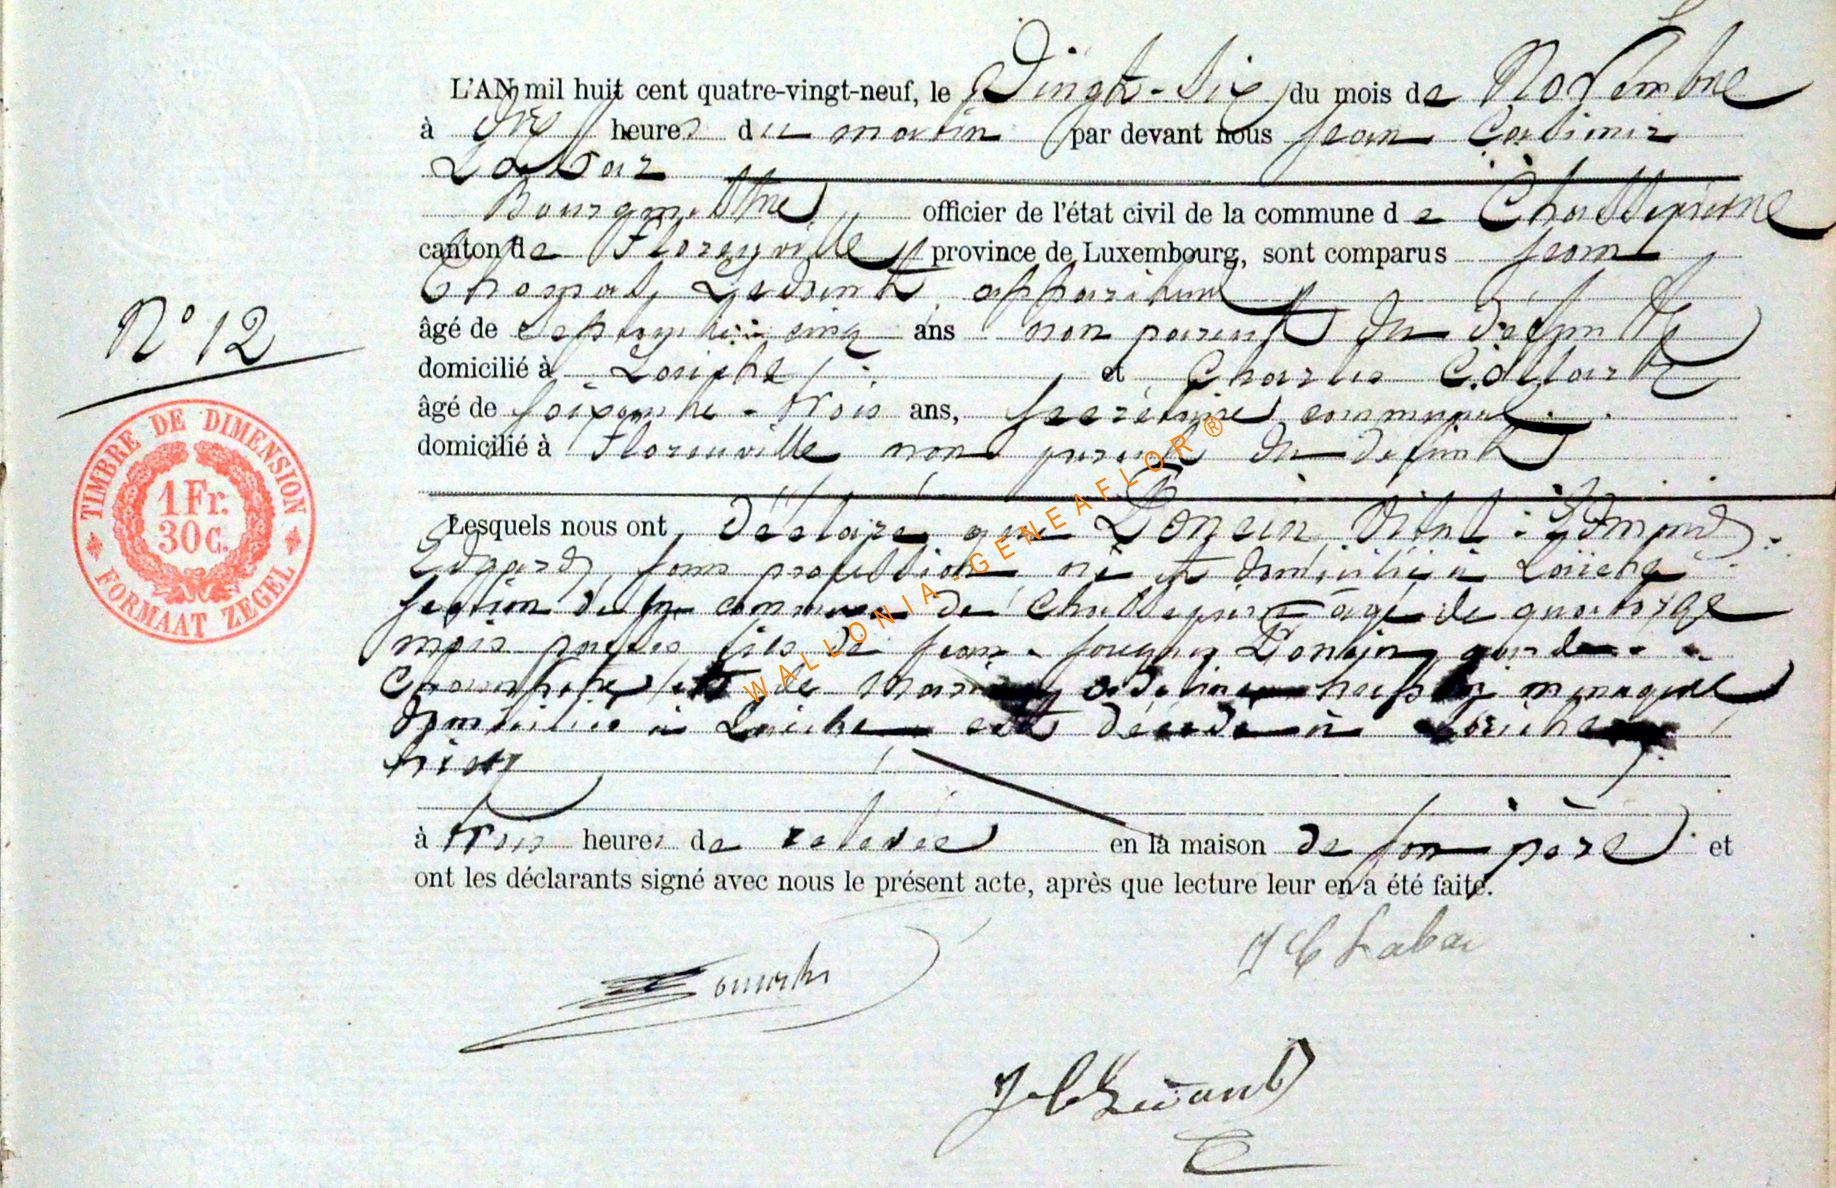 L'AN mil huit cent quatre-vingt-neuf, le Vingt-Six du mois de Novembre
à Dix heures du matin par devant nous Jean Casimir
Labar
Bourgmestre officier de l'état civil de la commune de Chassepierre
canton de Florenville province de Luxembourg, sont comparus Jean
Thomas appariteur
âgé de septante-cinq ans non parent du défunt
domicilié à Laiche et Charles Collart
âgé de soixante-trois ans, secrétaire communal
domicilié à Florenville non parent du défunt
N° 12
TIMBRE DE DIMENSION
1 Fr.
30 C.
FORMAAT ZEGEL
Lesquels nous ont déclaré que Donein Edmond
Edgard, sans profession né et domicilié à Laiche
section de la commune de Chassepierre âgé de quatorze
mois fils de Jean Donein garde
champêtre et de ménagère
domiciliés à Laiche est décédé à Laiche
hier
à trois heures de relevée en la maison de son père et
ont les déclarants signé avec nous le présent acte, après que lecture leur en a été faite.
J C Labar
WALLONIA-GENEAFLOR ®